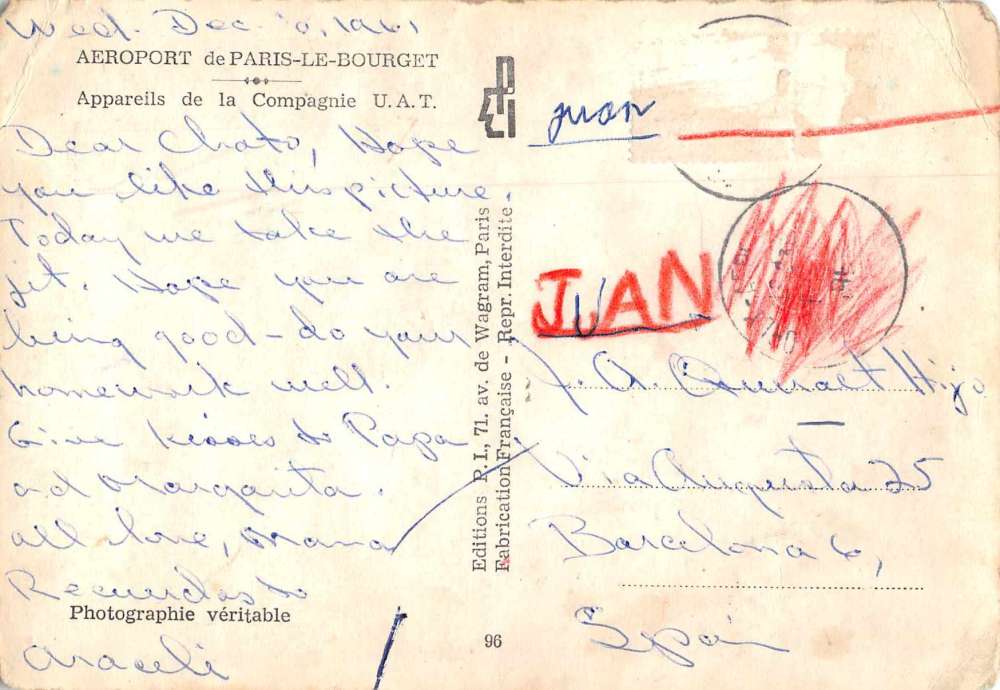 Wed. Dec. 1961
AEROPORT de PARIS-LE-BOURGET
Appareils de la Compagnie U.A.T.
Dear Chato, Hope
you like this picture.
Today we take the
jet. Hope you are
being good - do your
homework well.
Give kisses to Papa
and Margarita.
All love, Mama
Recuerdos to
Araceli
Photographie véritable
Editions P.I., 71. av. de Wagram, Paris
Fabrication Française - Repr. Interdite
96
juan
JUAN
J. A. Hijo
Via Augusta 25
Barcelona 6,
Spain